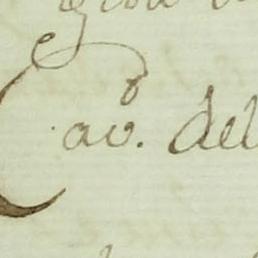 Cav.ᵒ del